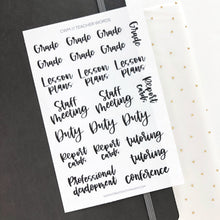 TEACHER WORDS
Grade Grade Grade Grade
Grade Grade Grade
Lesson plans Lesson plans
Staff meeting Staff meeting Report cards
Duty Duty Duty
Report cards Report cards tutoring
tutoring
Professional development conference